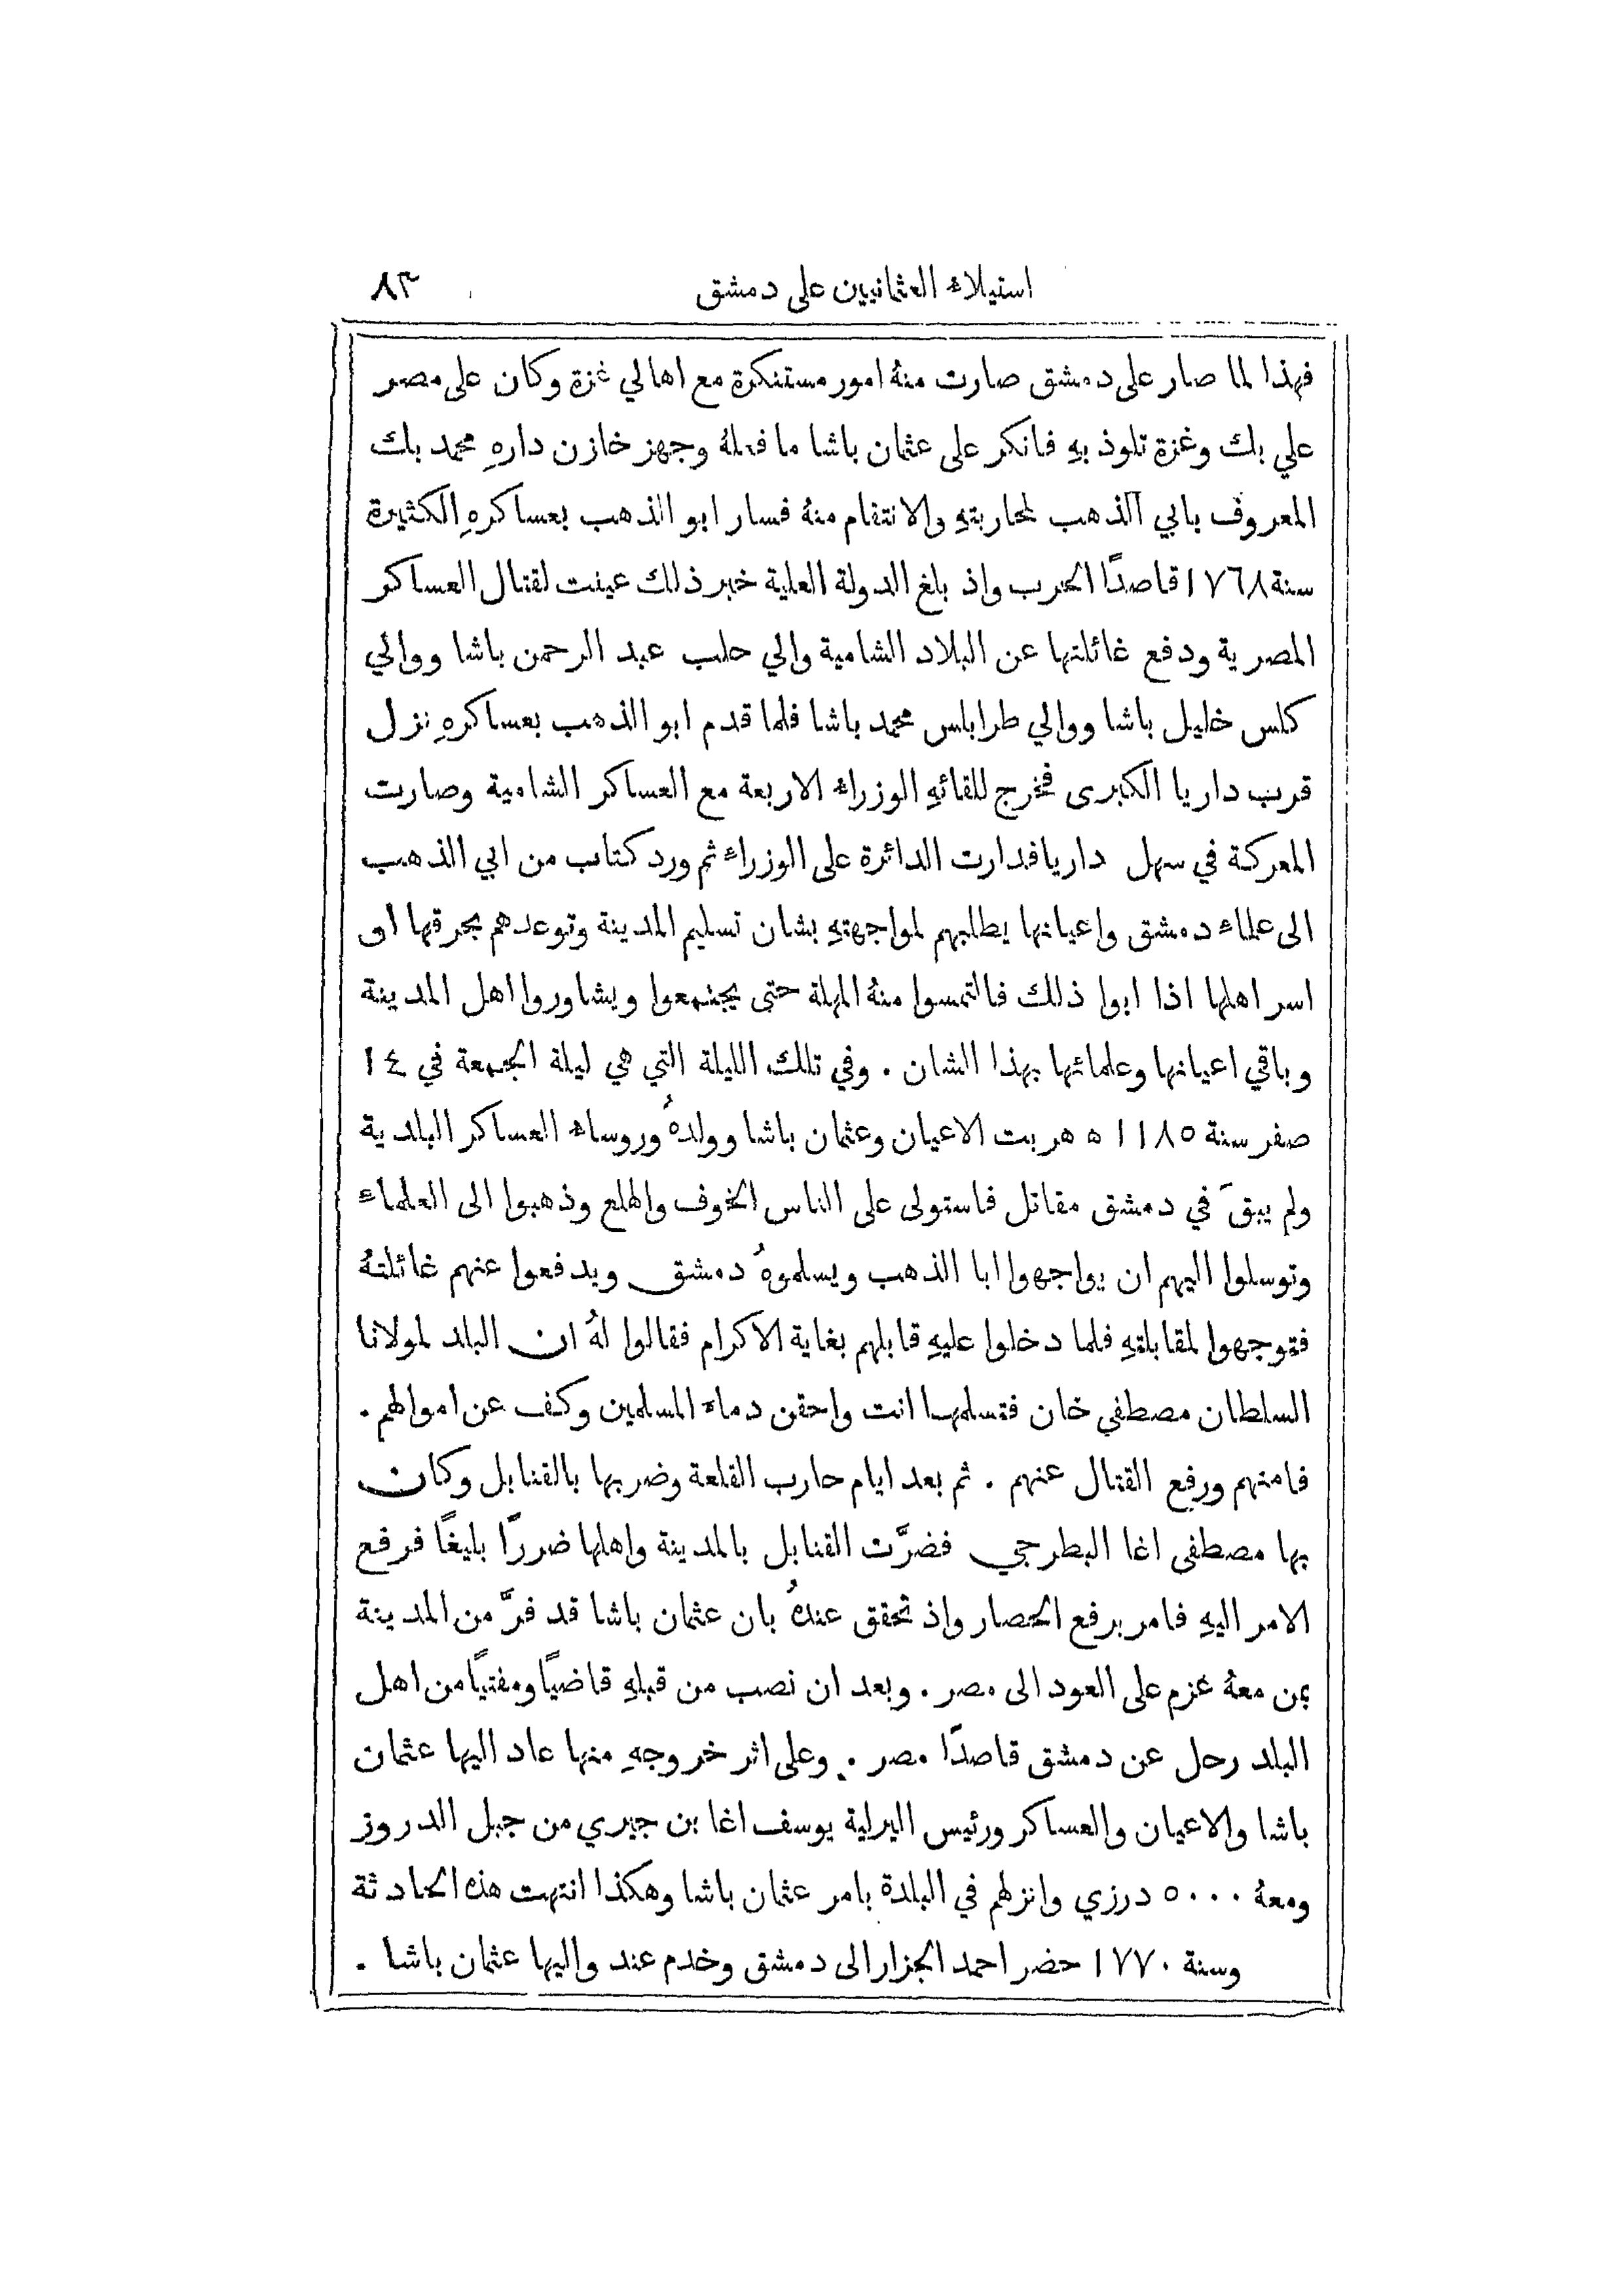 استيلاء العثمانيين على دمشق ٨٣
فهذا لما صار على دمشق صارت منهُ امور مستنكرة مع اهالي غزة وكان على مصر
علي بك وغزة تلوذ بهِ فانكر على عثمان باشا ما فعلهُ وجهز خازن دارهِ محمد بك
المعروف بابي الذهب لمحاربتهِ والانتقام منهُ فسار ابو الذهب بعساكرهِ الكثيرة
سنة ١٧٦٨ قاصدًا الحرب واذ بلغ الدولة العلية خبر ذلك عينت لقتال العساكر
المصرية ودفع غائلتها عن البلاد الشامية والي حلب عبد الرحمن باشا ووالي
كلس خليل باشا ووالي طرابلس محمد باشا فلما قدم ابو الذهب بعساكرهِ نزل
قرب داريا الكبرى فخرج للقائهِ الوزراء الاربعة مع العساكر الشامية وصارت
المعركة في سهل داريا فدارت الدائرة على الوزراء ثم ورد كتاب من ابي الذهب
الى علماء دمشق واعيانها يطلبهم لمواجهتهِ بشان تسليم المدينة وتوعدهم بحرقها او
اسر اهلها اذا ابوا ذلك فالتمسوا منهُ المهلة حتى يجتمعوا ويشاوروا اهل المدينة
وباقي اعيانها وعلمائها بهذا الشان . وفي تلك الليلة التي هي ليلة الجمعة في ١٤
صفر سنة ١١٨٥ ه هربت الاعيان وعثمان باشا وولدهُ وروساء العساكر البلدية
ولم يبقَ في دمشق مقاتل فاستولى على الناس الخوف والهلع وذهبوا الى العلماء
وتوسلوا اليهم ان يواجهوا ابا الذهب ويسلموهُ دمشق ويدفعوا عنهم غائلتهُ
فتوجهوا لمقابلتهِ فلما دخلوا عليهِ قابلهم بغاية الاكرام فقالوا لهُ ان البلد لمولانا
السلطان مصطفى خان فتسلمها انت واحقن دماء المسلمين وكف عن اموالهم .
فامنهم ورفع القتال عنهم . ثم بعد ايام حارب القلعة وضربها بالقنابل وكان
بها مصطفى اغا البطرجي فضرَّت القنابل بالمدينة واهلها ضررًا بليغًا فرفع
الامر اليهِ فامر برفع الحصار واذ تحقق عندهُ بان عثمان باشا قد فرَّ من المدينة
بمن معهُ عزم على العود الى مصر . وبعد ان نصب من قبلهِ قاضيًا ومفتيًا من اهل
البلد رحل عن دمشق قاصدًا مصر . وعلى اثر خروجهِ منها عاد اليها عثمان
باشا والاعيان والعساكر ورئيس اليرلية يوسف اغا بن جبري من جبل الدروز
ومعهُ ٥٠٠٠ درزي وانزلهم في البلدة بامر عثمان باشا وهكذا انتهت هذه الحادثة
وسنة ١٧٧٠ حضر احمد الجزار الى دمشق وخدم عند واليها عثمان باشا .